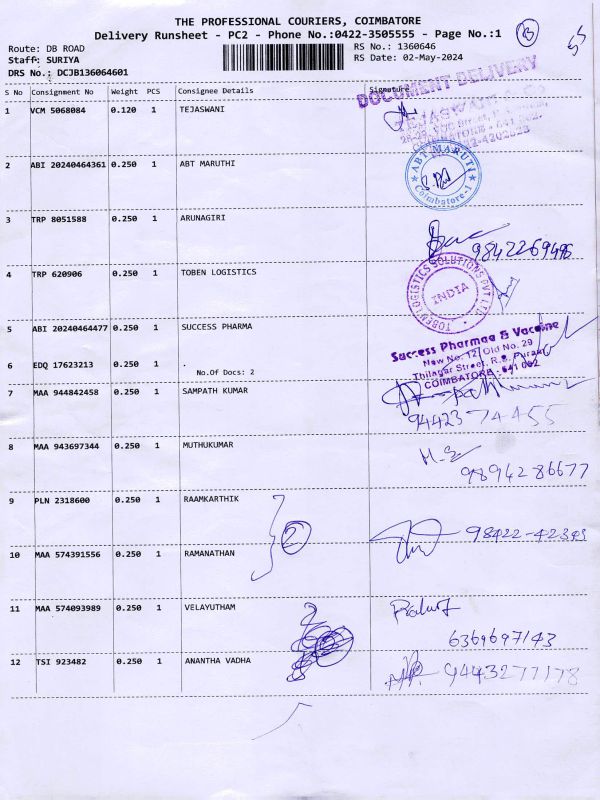 THE PROFESSIONAL COURIERS, COIMBATORE
Delivery Runsheet - PC2 - Phone No.:0422-3505555 - Page No.:1
Route: DB ROAD
RS No.: 1360646
Staff: SURIYA
RS Date: 02-May-2024
DRS No.: DCJB136064601
S No Consignment No Weight PCS Consignee Details Signature
DOCUMENT DELIVERY
1 VCM 5068084 0.120 1 TEJASWANI
2 ABI 20240464361 0.250 1 ABT MARUTHI
ABT MARUTI
Coimbatore-1
3 TRP 8051588 0.250 1 ARUNAGIRI
9842269496
4 TRP 620906 0.250 1 TOBEN LOGISTICS
TOBEN LOGISTICS SOLUTIONS PVT LTD
INDIA
5 ABI 20240464477 0.250 1 SUCCESS PHARMA
Success Pharmaa & Vaccine
New No. 12, Old No. 29
Thilagar Street, R.S. Puram
COIMBATORE - 641 002
6 EDQ 17623213 0.250 1 .
No.Of Docs: 2
7 MAA 944842458 0.250 1 SAMPATH KUMAR
9442374455
8 MAA 943697344 0.250 1 MUTHUKUMAR
9894286677
9 PLN 2318600 0.250 1 RAAMKARTHIK
2
98422-42343
10 MAA 574391556 0.250 1 RAMANATHAN
11 MAA 574093989 0.250 1 VELAYUTHAM
6369697143
12 TSI 923482 0.250 1 ANANTHA VADHA
9443277178